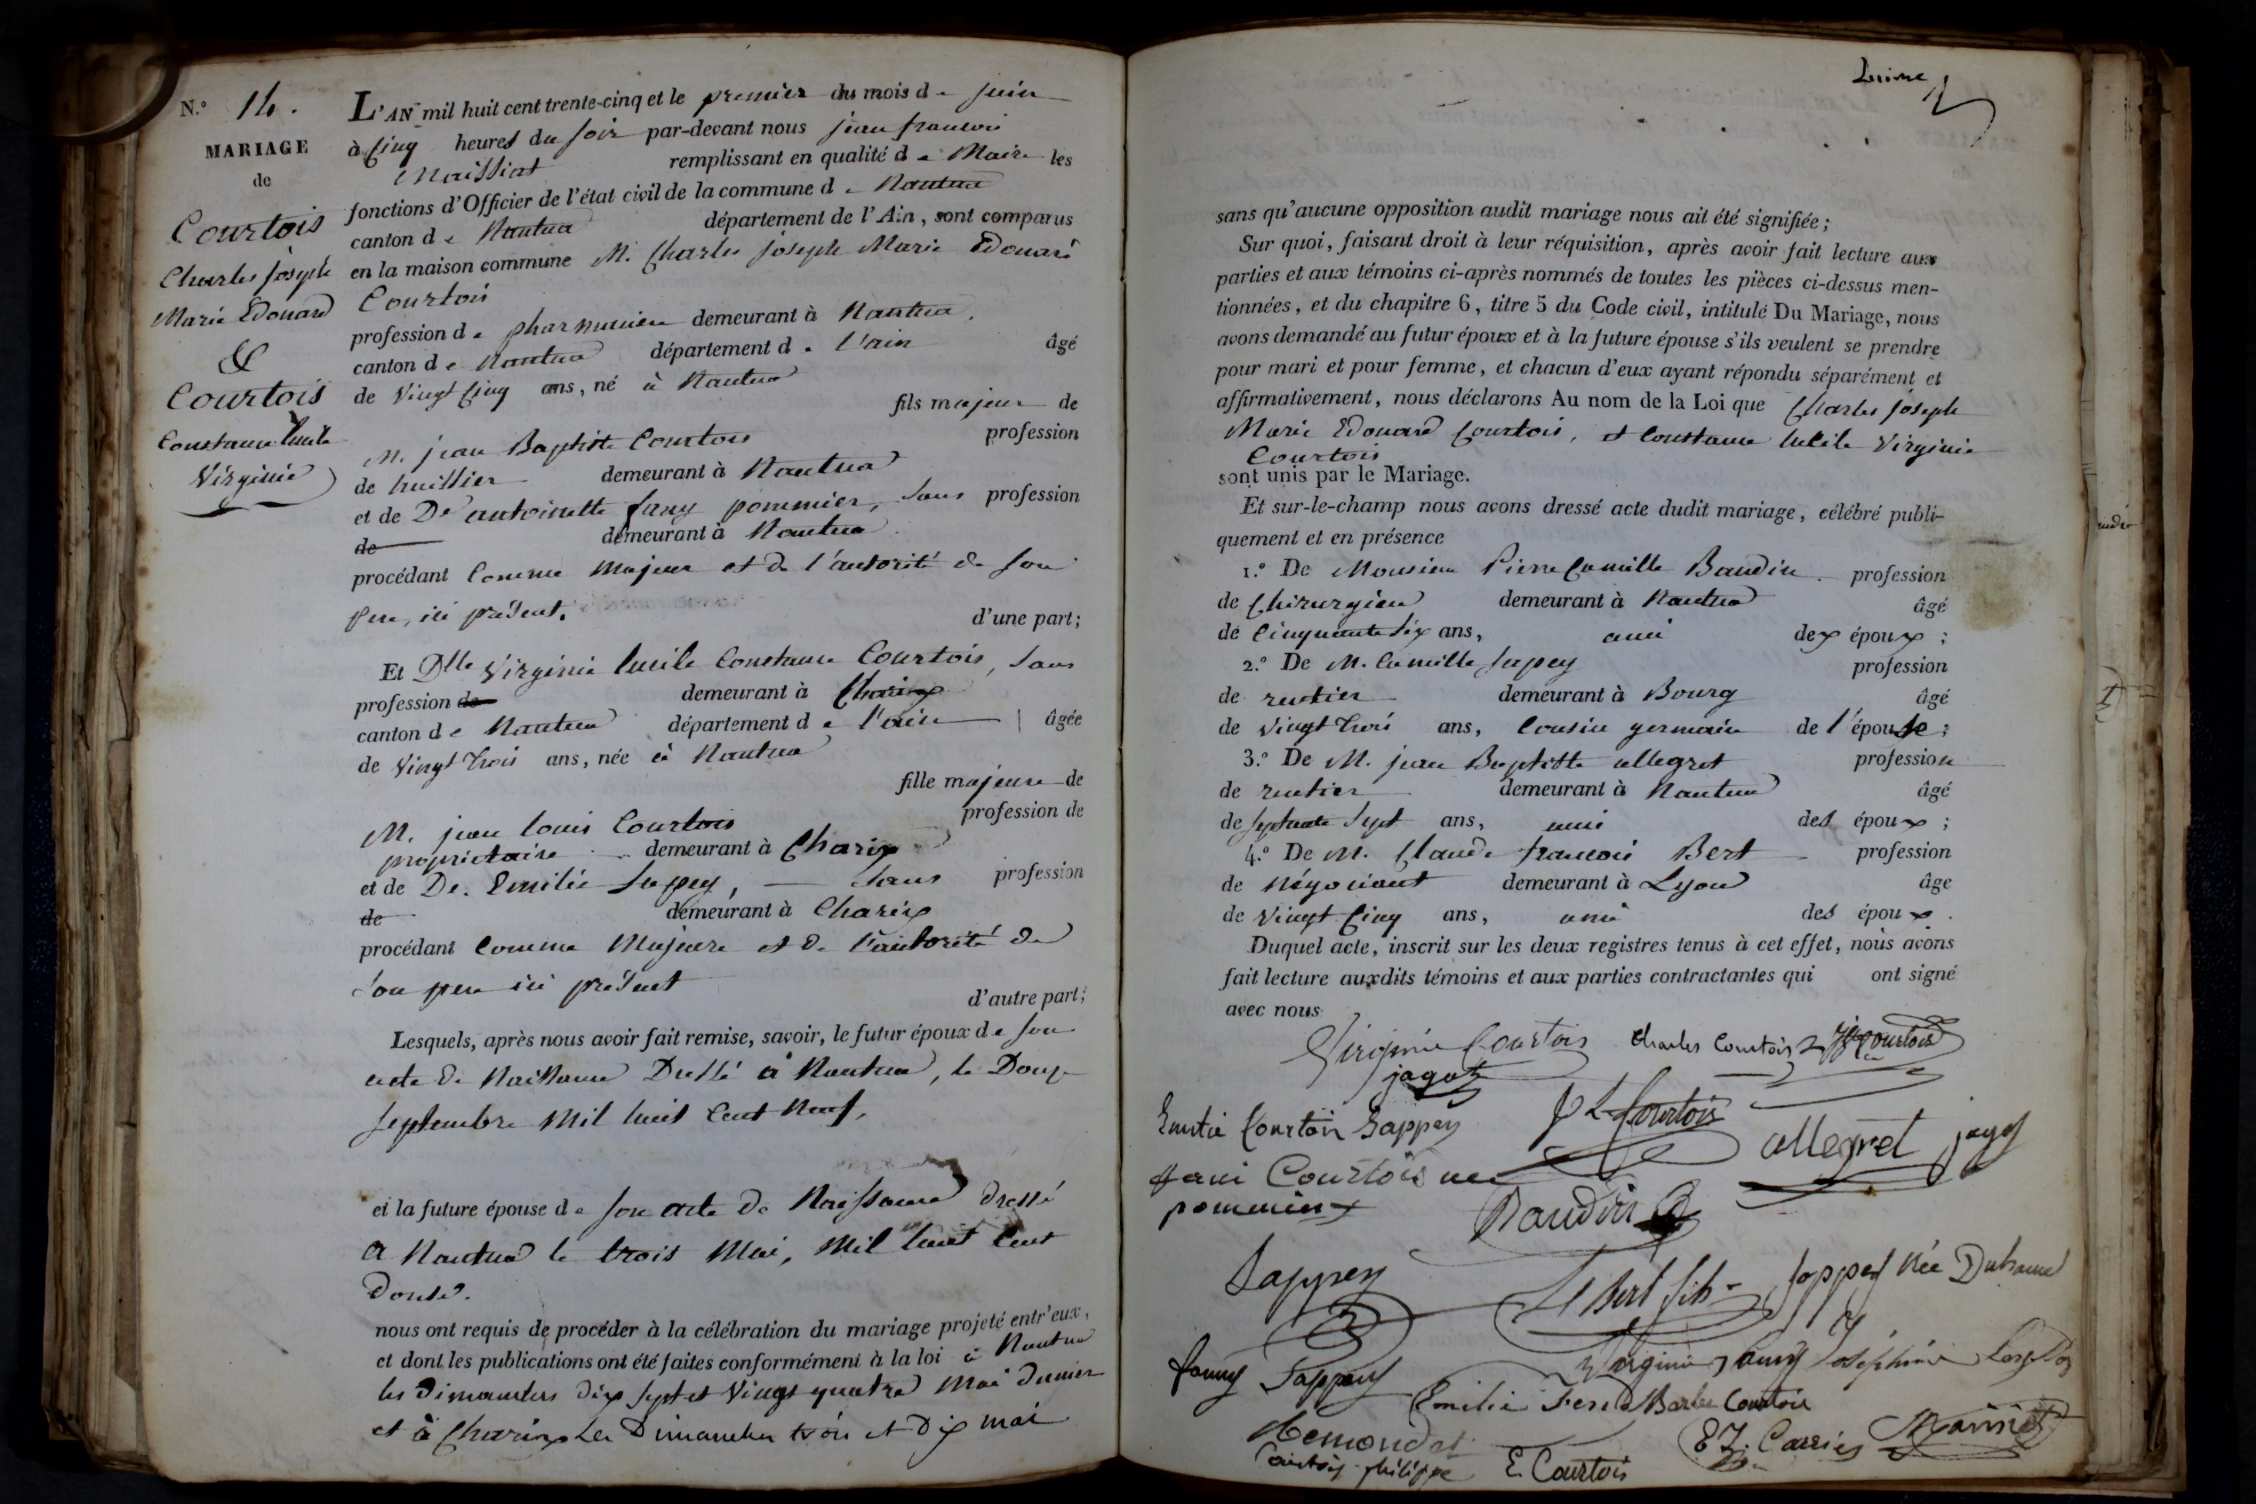 N.° 14.
MARIAGE
de
Courtois
Charles joseph
Marie Edouard
&
Courtois
Constance lucile
Virginie
L'AN mil huit cent trente-cinq et le premier du mois de juin
à Cinq heures du soir par-devant nous jean francois
Maissiat remplissant en qualité de Maire les
fonctions d'Officier de l'état civil de la commune de Nantua
canton de Nantua département de l'Ain, sont comparus
en la maison commune M. Charles joseph Marie Edouard
Courtois
profession de pharmacien demeurant à Nantua,
canton de Nantua département de l'ain âgé
de Vingt Cinq ans, né à Nantua
fils majeur de
M. jean Baptiste Courtois profession
de huissier demeurant à Nantua
et de De antoinette fany pommier, sans profession
de demeurant à Nantua
procédant Comme Majeur et de l'autorité de son
pere, ici présent. d'une part;
Et Dlle Virginie lucile Constance Courtois, sans
profession de demeurant à Charix
canton de Nantua département de l'ain âgée
de Vingt trois ans, née à Nantua
fille majeure de
M. jean louis Courtois profession de
proprietaire demeurant à Charix
et de De. Emilie Sapey, sans profession
de demeurant à Charix
procédant Comme Majeure et de l'autorité de
son pere ici présent
d'autre part;
Lesquels, après nous avoir fait remise, savoir, le futur époux de son
acte de Naissance Dressé à Nantua, le Douze
septembre Mil huit Cent Neuf,
et la future épouse de son acte de Naissance dressé
à Nantua le trois Mai, Mil huit Cent
Douse.
nous ont requis de procéder à la célébration du mariage projeté entr'eux,
et dont les publications ont été faites conformément à la loi à Nantua
les dimanches dix sept et Vingt quatre Mai dernier
et à Charix Les Dimanches trois et Dix mai
sans qu'aucune opposition audit mariage nous ait été signifiée;
Sur quoi, faisant droit à leur réquisition, après avoir fait lecture aux
parties et aux témoins ci-après nommés de toutes les pièces ci-dessus men-
tionnées, et du chapitre 6, titre 5 du Code civil, intitulé Du Mariage, nous
avons demandé au futur époux et à la future épouse s'ils veulent se prendre
pour mari et pour femme, et chacun d'eux ayant répondu séparément et
affirmativement, nous déclarons Au nom de la Loi que Charles joseph
Marie Edouard Courtois, et Constance lucile Virginie
Courtois
sont unis par le Mariage.
Et sur-le-champ nous avons dressé acte dudit mariage, célébré publi-
quement et en présence
1.° De Monsieur Pierre Camille Baudin profession
de Chirurgien demeurant à Nantua âgé
de Cinquante six ans, ami des époux;
2.° De M. Camille Sapey profession
de rentier demeurant à Bourg âgé
de Vingt trois ans, Cousin germain de l'épouse;
3.° De M. jean Baptiste allegret profession
de rentier demeurant à Nantua âgé
de septante sept ans, ami des époux;
4.° De M. Claude francois Bert profession
de Négociant demeurant à Lyon âge
de Vingt Cinq ans, ami des époux.
Duquel acte, inscrit sur les deux registres tenus à cet effet, nous avons
fait lecture auxdits témoins et aux parties contractantes qui ont signé
avec nous
Virginie Courtois Charles Courtois Courtois
jagot
Emilie Courtois Sappey J L Courtois allegret jagot
fani Courtois née
pommier
Baudin
Sappey Bert fils Sappey née
fanny Sappey Virginie fanny Joséphine
Emilie Courtois
Courtois philippe E. Courtois Carrier